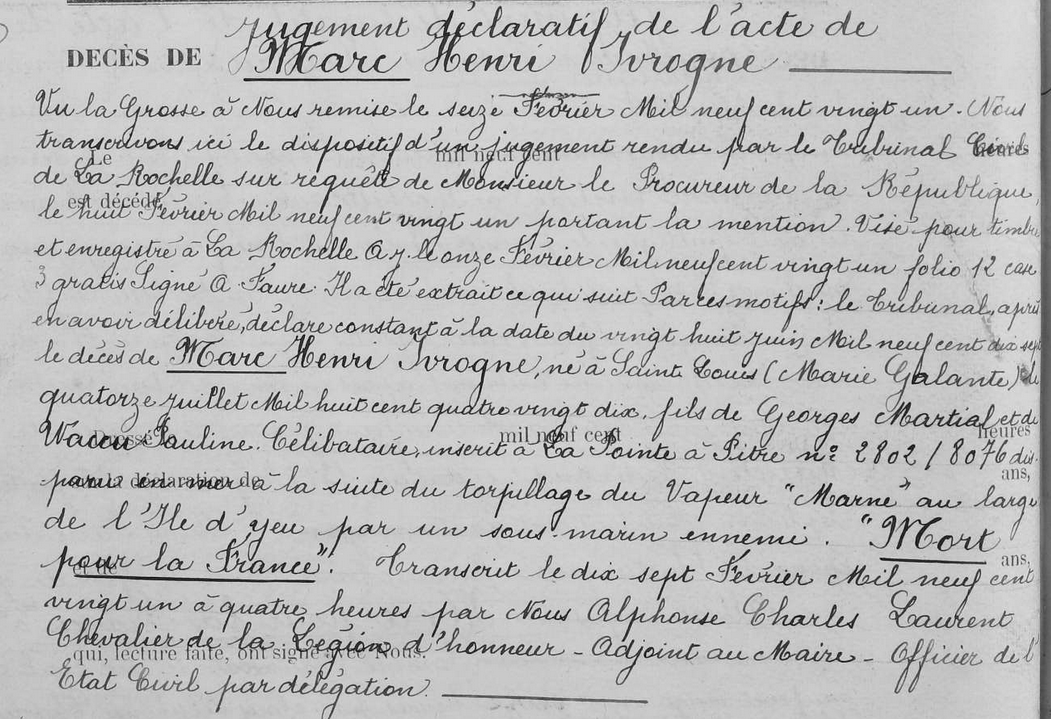 Jugement déclaratif de l'acte de
DECÈS DE Marc Henri Ivrogne
Vu la Grosse à Nous remise le seize Février Mil neuf cent vingt un. Nous
transcrivons ici le dispositif d'un jugement rendu par le Tribunal Civil
mil neuf cent heures
Le
de La Rochelle sur requête de Monsieur le Procureur de la République,
est décédé
le huit Février Mil neuf cent vingt un portant la mention. Visé pour timbre
et enregistré à La Rochelle A.J. le onze Février Mil neuf cent vingt un folio 12 case
3 gratis Signé A. Faure. Il a été extrait ce qui suit Par ces motifs: le Tribunal, après
en avoir délibéré, déclare constant à la date du vingt huit Juin Mil neuf cent dix sept
le décès de Marc Henri Ivrogne, né à Saint Louis (Marie Galante) le
quatorze juillet Mil huit cent quatre vingt dix, fils de Georges Martial et de
mil neuf cent heures
Pauline. Célibataire, inscrit à La Pointe à Pitre n° 2802/8076 dis-
paru en mer à la suite du torpillage du Vapeur "Marne" au large
sur la déclaration de ans,
de l'Ile d'Yeu par un sous-marin ennemi. "Mort
pour la France". Transcrit le dix sept Février Mil neuf cent
et de ans,
vingt un à quatre heures par Nous Alphonse Charles Laurent
Chevalier de la Légion d'honneur - Adjoint au Maire - Officier de l'
qui, lecture faite, ont signé avec Nous.
Etat Civil par délégation.